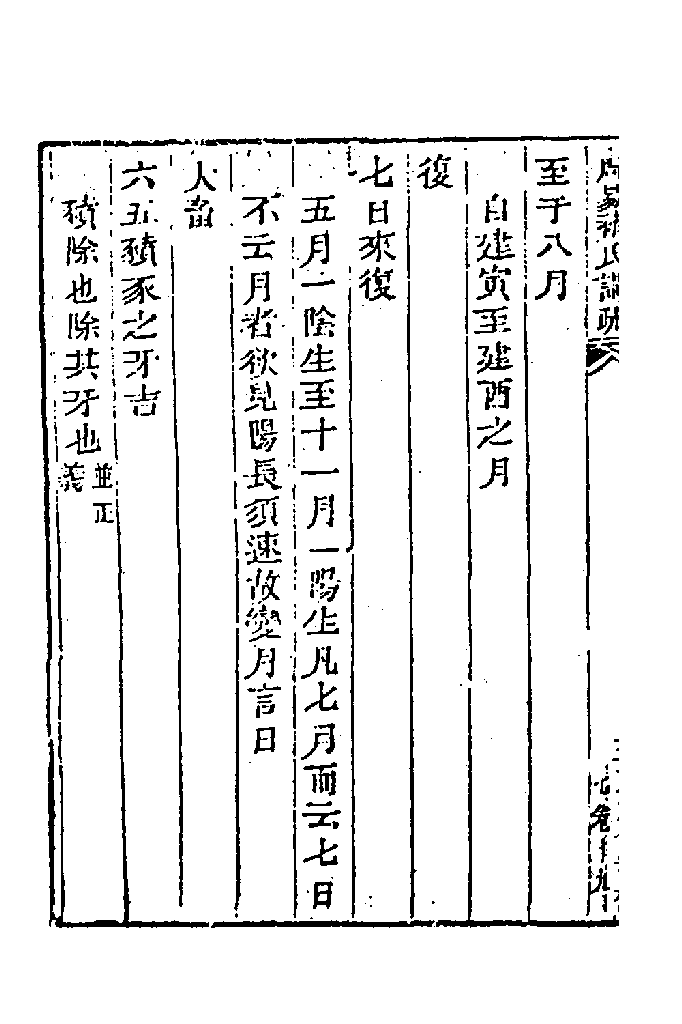 周易褚氏講疏
至于八月
自建寅至建酉之月
復
七日來復
五月一陰生至十一月一陽生凡七月而云七日
不云月者欲見陽長須速故變月言日
大畜
六五豶豕之牙吉
豶除也除其牙也並正義